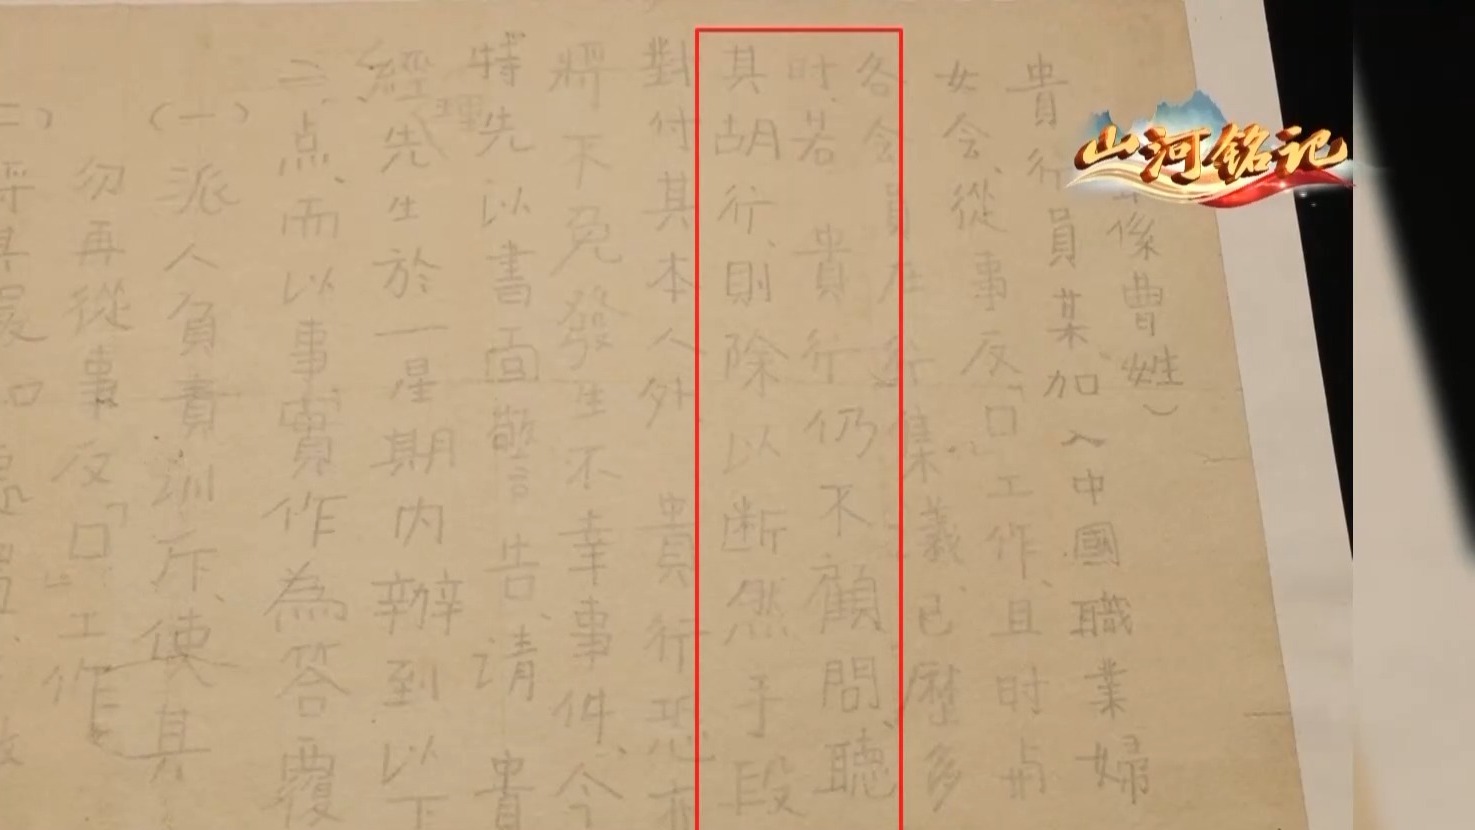 山河铭记
係曹姓)
貴行員某、加入中國職業婦
女会、從事反「口」工作、且时与
各会員在行集議、已歷多
时、若 貴行仍不顧問、聽
其胡行、則除以断然手段
對付其本人外、貴行恐亦
將不免發生不幸事件、今
特先以書面敬告、请 貴
經理先生於一星期内辦到以下
二点、而以事實作為答覆
(一)派人負責訓斥、使其
勿再從事反「口」工作